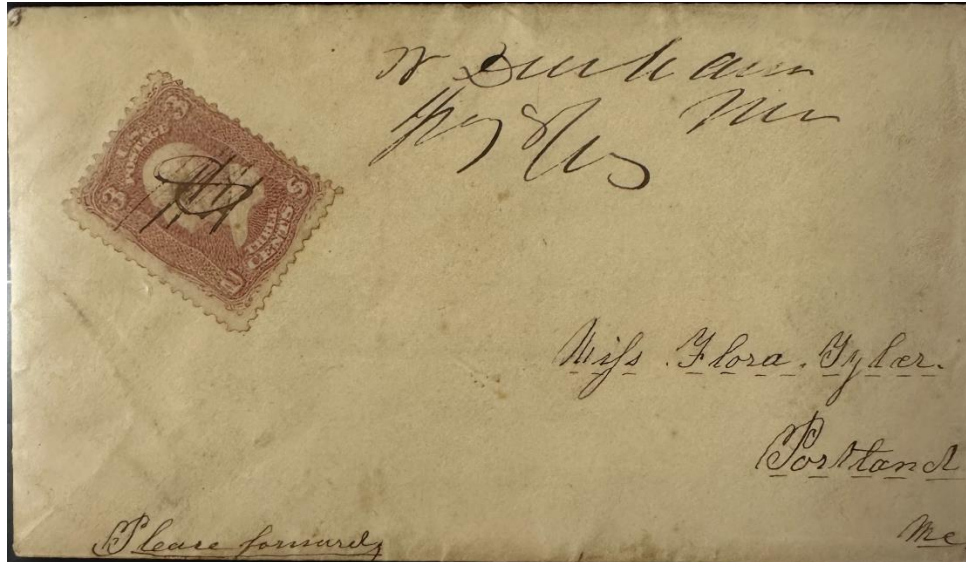 W Durham
Me
3 U.S. POSTAGE 3
THREE CENTS
U S
Miss Flora. Tyler.
Portland
Me
Please forward